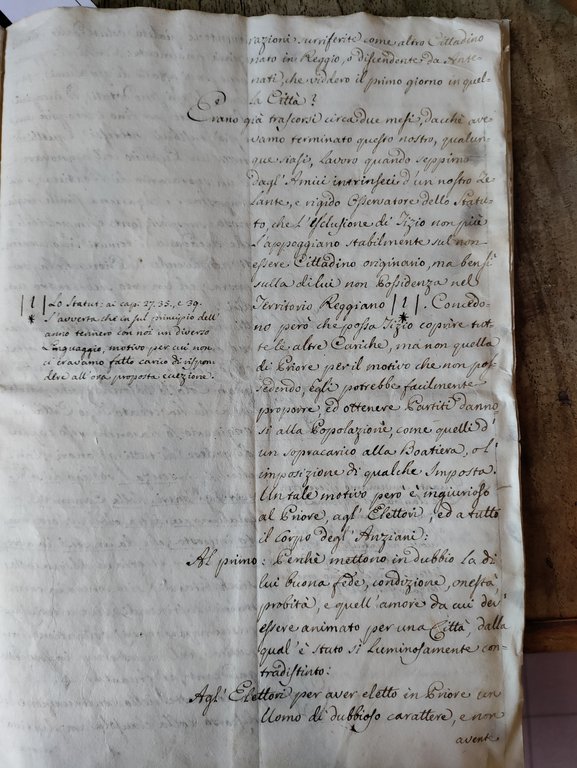 razioni surriferite come altro Cittadino
nato in Reggio, o discendente da Ante-
nati, che viddero il primo giorno in quel-
la Città?
Erano già trascorsi circa due mesi, dacchè ave
vamo terminato questo nostro, qualun-
que siasi, lavoro quando seppimo
dagl' Amici intrinseci d'un nostro Ze
lante, e rigido Osservatore dello Statu-
to, che l'esclusione di Tizio non più
l'appoggiano stabilmente sul non
essere Cittadino originario, ma bensì
sulla di lui non Possidenza nel
Territorio Reggiano |1|. Concedo-
no però che possa Tizio coprire tut-
te le altre Cariche, ma non quella
di Priore per il motivo che non pos-
sedendo, egli potrebbe facilmente
proporre, ed ottenere Partiti danno
si alla Popolazione, come quelli d'
un sopracarico alla Boatiera, o l'
imposizione di qualche Imposta.
Un tale motivo però è ingiurioso
al Priore, agl' Elettori, ed a tutto
il corpo degl' Anziani:
Al primo: Perchè mettono in dubbio la di
lui buona fede, condizione, onestà
probità, e quell' amore da cui dev'
essere animato per una Città, dalla
qual' è stato sì luminosamente con-
tradistinto:
Agl' Elettori per aver eletto in Priore un
Uomo di dubbioso carattere, e non
avente
|1| Lo Statut: ai cap: 27. 35., e 39.
* S'avverta che in sul principio dell'
anno tennero con noi un diverso
Linguaggio, motivo per cui non
ci eravamo fatto carico di rispon-
dere all'ora proposta eccezione.